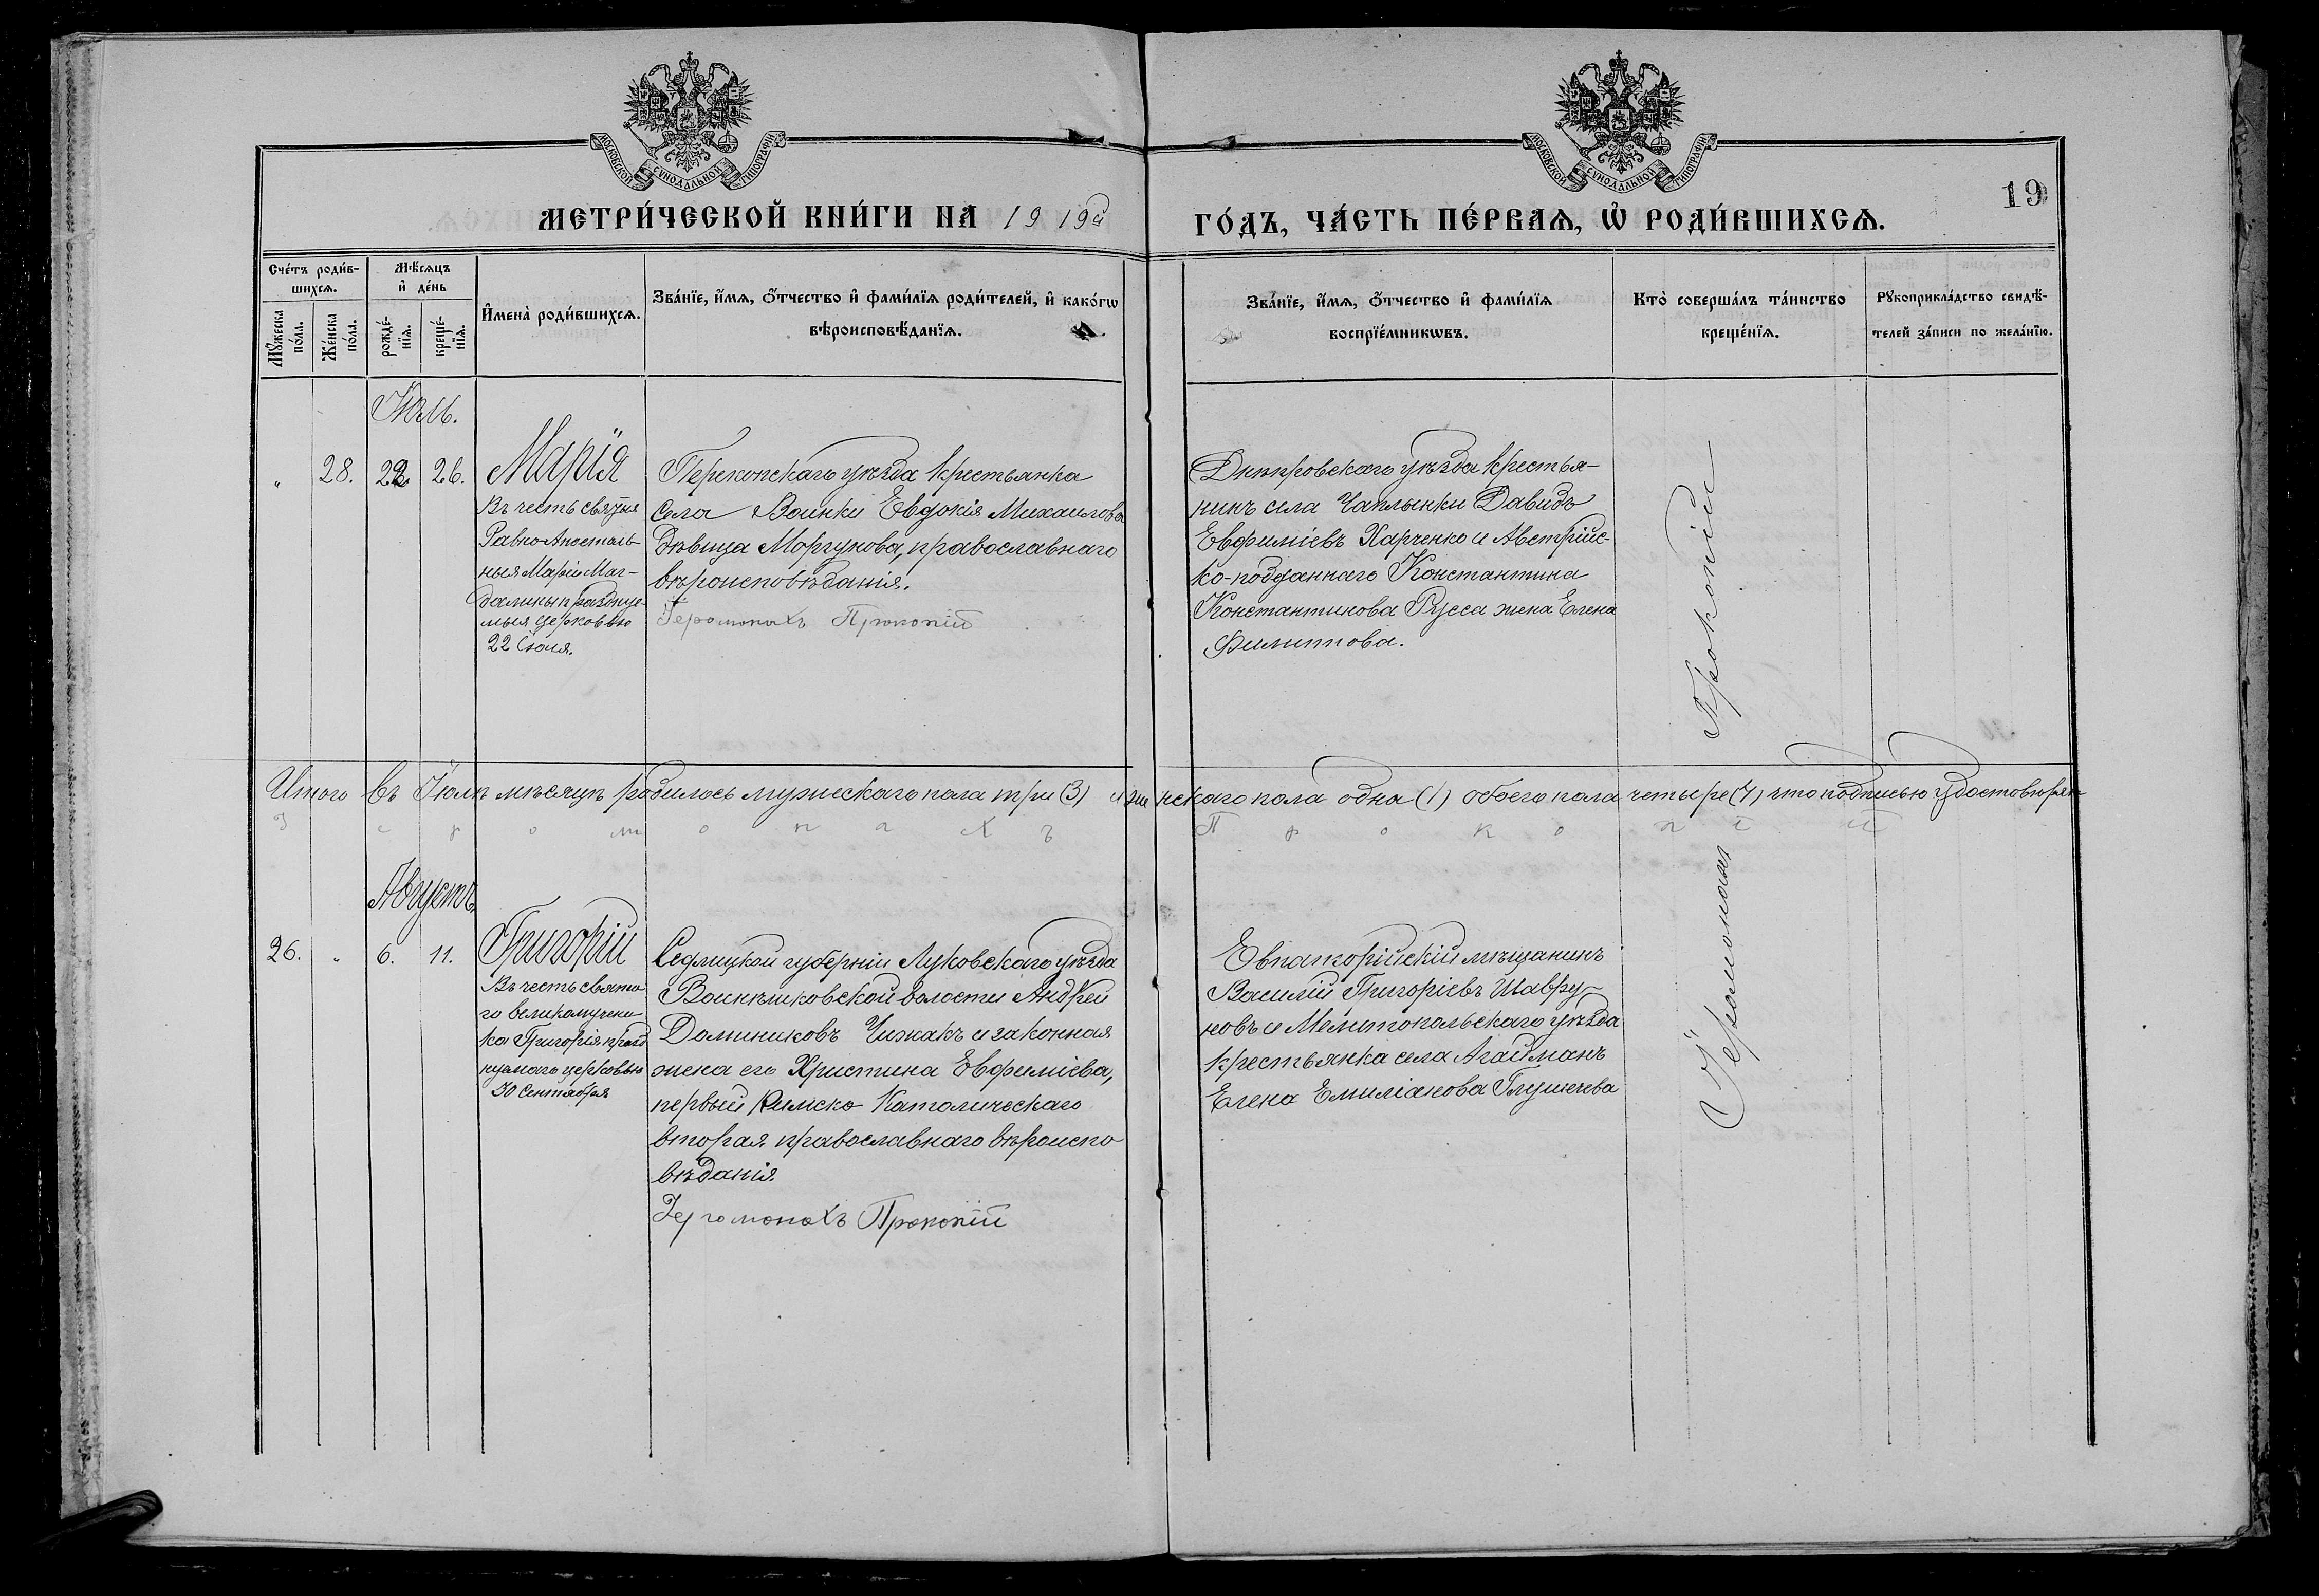 МОСКОВСКОЙ СѴНОДАЛЬНОЙ ТИПОГРАФІИ
МОСКОВСКОЙ СѴНОДАЛЬНОЙ ТИПОГРАФІИ
19
МЕТРИ́ЧЕСКОЙ КНИ́ГИ НА 1919й ГО́ДЪ, ЧА́СТЬ ПЕ́РВАѦ, Ѡ҆ РОДИ́ВШИХСѦ.
Сче́тъ роди́в-
шихсѧ.
Мꙋ́жеска
по́ла.
Же́нска
по́ла.
Мѣ́сѧцъ
и҆ де́нь
рожде́-
нїѧ.
креще́-
нїѧ.
И҆мена̀ роди́вшихсѧ.
Зва́нїе, и҆́мѧ, ѻ҆́тчество и҆ фами́лїѧ роди́телей, и҆ како́гѡ
вѣроисповѣ́данїѧ.
Зва́нїе, и҆́мѧ, ѻ҆́тчество и҆ фами́лїѧ
воспрїе́мникѡвъ.
Кто̀ соверша́лъ та́инство
креще́нїѧ.
Рꙋкоприкла́дство свидѣ́-
телей за́писи по жела́нїю.
Июль.
„ 28. 22. 26.
Марія
Въ честь святыя
Равно Апостоль-
ныя Маріи Маг-
далины праздние-
мыя церковью
22 Іюля.
Перекопскаго уѣзда крестьянка
села Воинки Евдокія Михаилова
дѣвица Моргунова, православнаго
вѣроисповѣданія.
Іеромонахъ Прокопій
Днѣпровскаго уѣзда крестья-
нинъ села Чаплынки Давидъ
Евфиміевъ Харченко и Австрійс-
ко-подданнаго Константина
Константинова Русса жена Елена
Филиппова.
Итого въ Іюлѣ мѣсяцѣ родилось мужескаго пола три (3) и женскаго пола одна (1) обоего пола четыре (4) что подписью удостовѣряю
Іеромонахъ Прокопій
Августъ
26. „ 6. 11.
Григорій
Въ честь свято-
го великомучени-
ка Григорія празд
нуемаго церковью
30 Сентября
Седлицкой губерніи Луковскаго уѣзда
Андрей
Доминиковъ Чижакъ и законная
жена его Христина Евфиміева,
первый Римско-Католическаго
вторая православнаго вѣроиспо
вѣданія.
Іеромонахъ Прокопій
Евпаторійскій мѣщанинъ
Василій Григоріевъ Шавру-
новъ и Мелитопольскаго уѣзда
крестьянка села Агайманъ
Елена Емиліанова
Іеромонахъ Прокопій